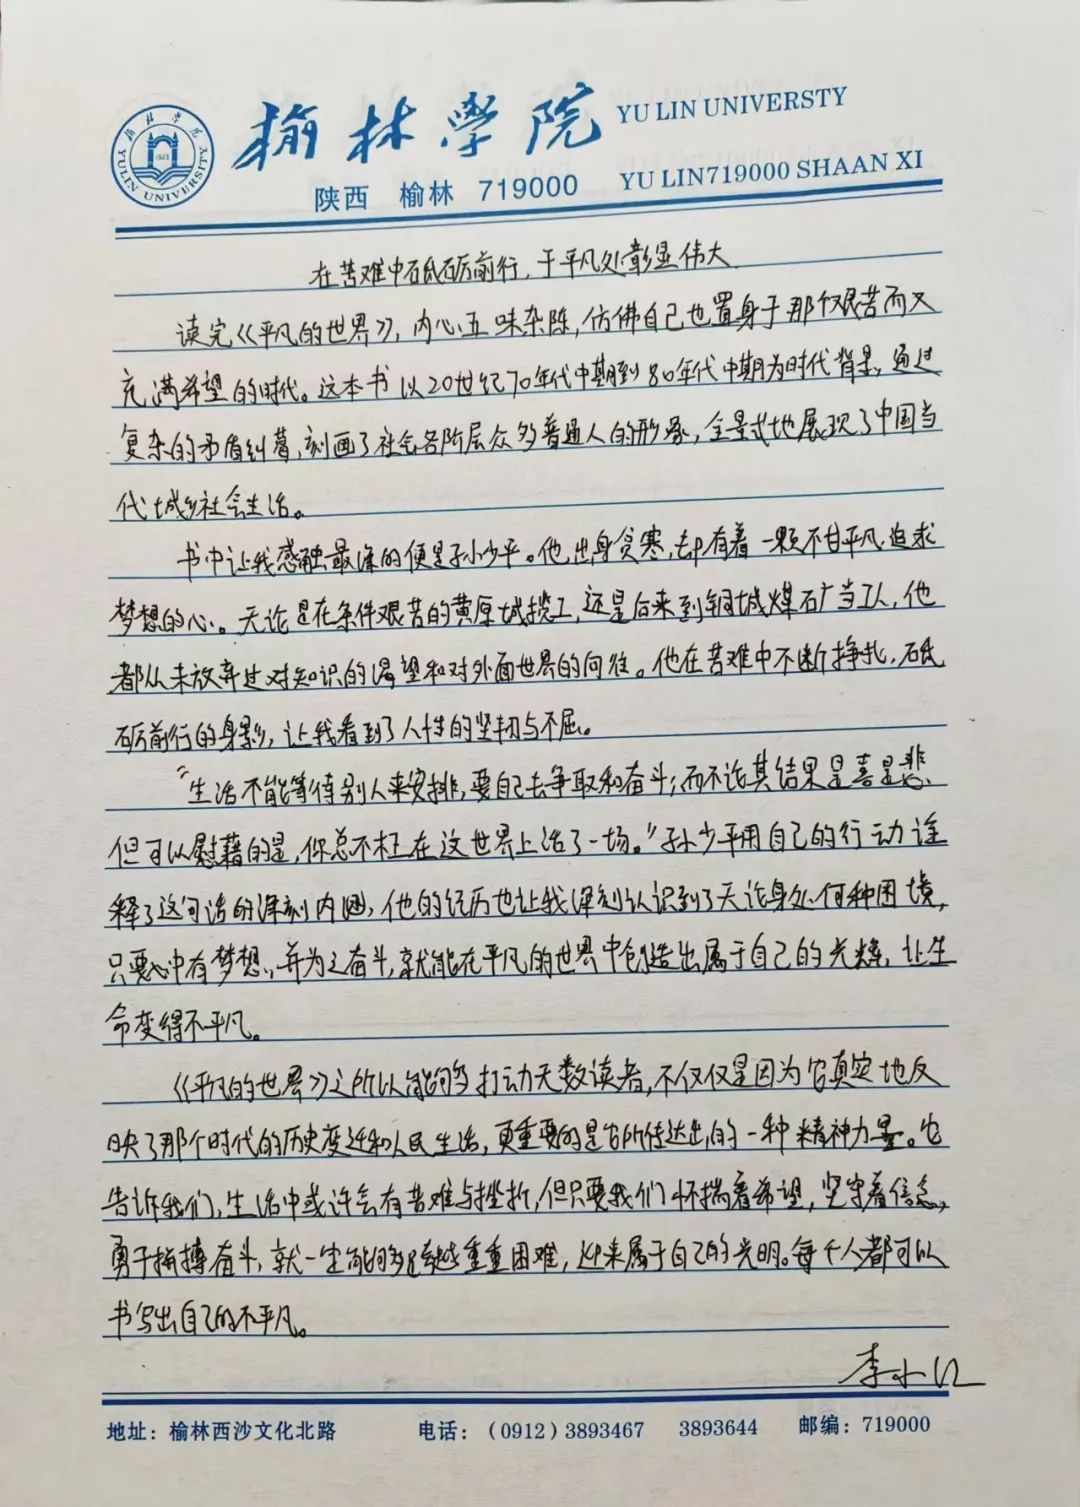 榆林学院
YULIN UNIVERSITY
1923
榆林學院 YU LIN UNIVERSTY
陕西 榆林 719000 YU LIN719000 SHAAN XI
在苦难中砥砺前行,于平凡处彰显伟大
读完《平凡的世界》,内心五味杂陈,仿佛自己也置身于那个艰苦而又
充满希望的时代。这本书以20世纪70年代中期到80年代中期为时代背景,通过
复杂的矛盾纠葛,刻画了社会各阶层众多普通人的形象,全景式地展现了中国当
代城乡社会生活。
书中让我感触最深的便是孙少平。他出身贫寒,却有着一颗不甘平凡、追求
梦想的心。无论是在条件艰苦的黄原城揽工,还是后来到铜城煤矿当工人,他
都从未放弃过对知识的渴望和对外面世界的向往。他在苦难中不断挣扎,砥
砺前行的身影,让我看到了人性的坚韧与不屈。
“生活不能等待别人来安排,要自己去争取和奋斗;而不论其结果是喜是悲,
但可以慰藉的是,你总不枉在这世界上活了一场。”孙少平用自己的行动诠
释了这句话的深刻内涵,他的经历也让我深刻认识到了无论身处何种困境,
只要心中有梦想,并为之奋斗,就能在平凡的世界中创造出属于自己的光辉,让生
命变得不平凡。
《平凡的世界》之所以能够打动无数读者,不仅仅是因为它真实地反
映了那个时代的历史变迁和人民生活,更重要的是它所传达出的一种精神力量。它
告诉我们,生活中或许会有苦难与挫折,但只要我们怀揣着希望,坚守着信念,
勇于拼搏奋斗,就一定能够跨越重重困难,迎来属于自己的光明。每个人都可以
书写出自己的不平凡。
李小江
地址:榆林西沙文化北路 电话:(0912)3893467 3893644 邮编:719000